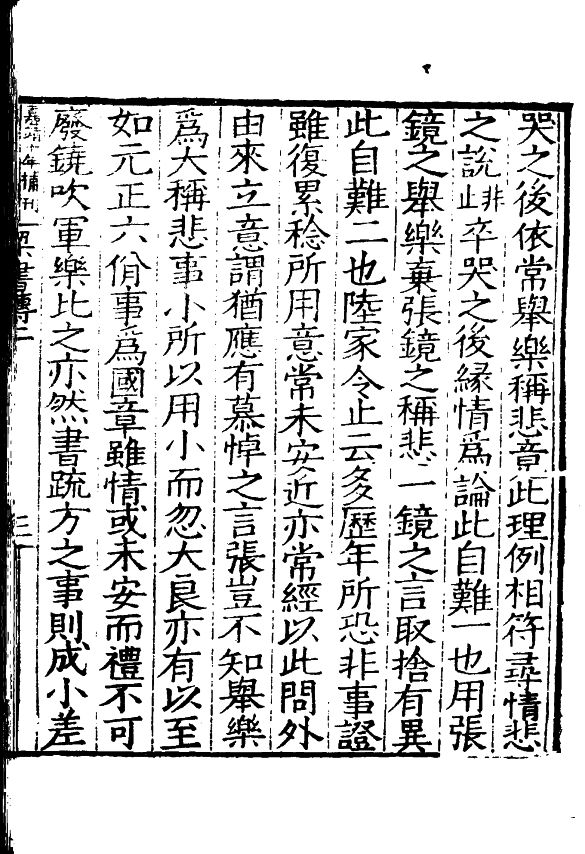 哭之後依常舉樂稱悲章此理例相符尋情悲
之說非止卒哭之後緣情爲論此自難一也用張
鏡之舉樂棄張鏡之稱悲一鏡之言取捨有異
此自難二也陸家令止云多歷年所恐非事證
雖復累稔所用意常未安近亦常經以此問外
由來立意謂猶應有慕悼之言張豈不知舉樂
爲大稱悲事小所以用小而忽大良亦有以至
如元正六佾事爲國章雖情或未安而禮不可
廢鐃吹軍樂比之亦然書疏方之事則成小差
嘉靖十年補刊 梁書傳二 三